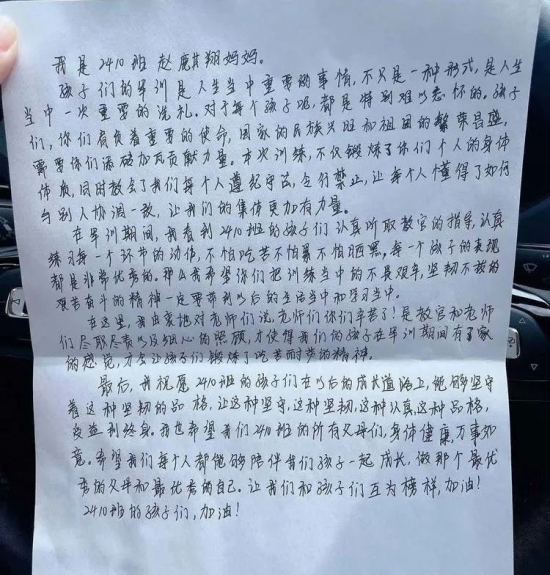 我是2410班赵麒翔妈妈。
孩子们的军训是人生当中重要的事情,不只是一种形式,是人生
当中一次重要的洗礼。对于每个孩子呢,都是特别难以忘怀的。孩子
们,你们肩负着重要的使命,国家的民族兴旺和祖国的繁荣昌盛,
需要你们添砖加瓦贡献力量。本次训练,不仅锻炼了你们个人的身体
体质,同时教会了我们每个人遵纪守法,令行禁止,让每个人懂得了如何
与别人协调一致,让我们的集体更加有力量。
在军训期间,我看到2410班的孩子们认真听取教官的指导,认真
练习每一个环节的动作,不怕吃苦不怕累不怕晒黑,每一个孩子的表现
都是非常优秀的。那么我希望你们把训练当中的不畏艰辛,坚韧不拔的
艰苦奋斗的精神一定要带到以后的生活当中和学习当中。
在这里,我由衷地对老师们说,老师们你们辛苦了!是教官和老师
们尽职尽责以及细心的照顾,才使得我们的孩子在军训期间有了家
的感觉,才会让孩子们锻炼了吃苦耐劳的精神。
最后,我祝愿2410班的孩子们在以后的成长道路上,能够坚守
着这种坚韧的品格,让这种坚守,这种坚韧,这种认真,这种品格,
受益到终身。我也希望我们2410班的所有父母们,身体健康万事如
意。希望我们每个人都能够陪伴我们孩子一起成长,做那个最优
秀的父母和最优秀的自己。让我们和孩子们互为榜样,加油!
2410班的孩子们,加油!